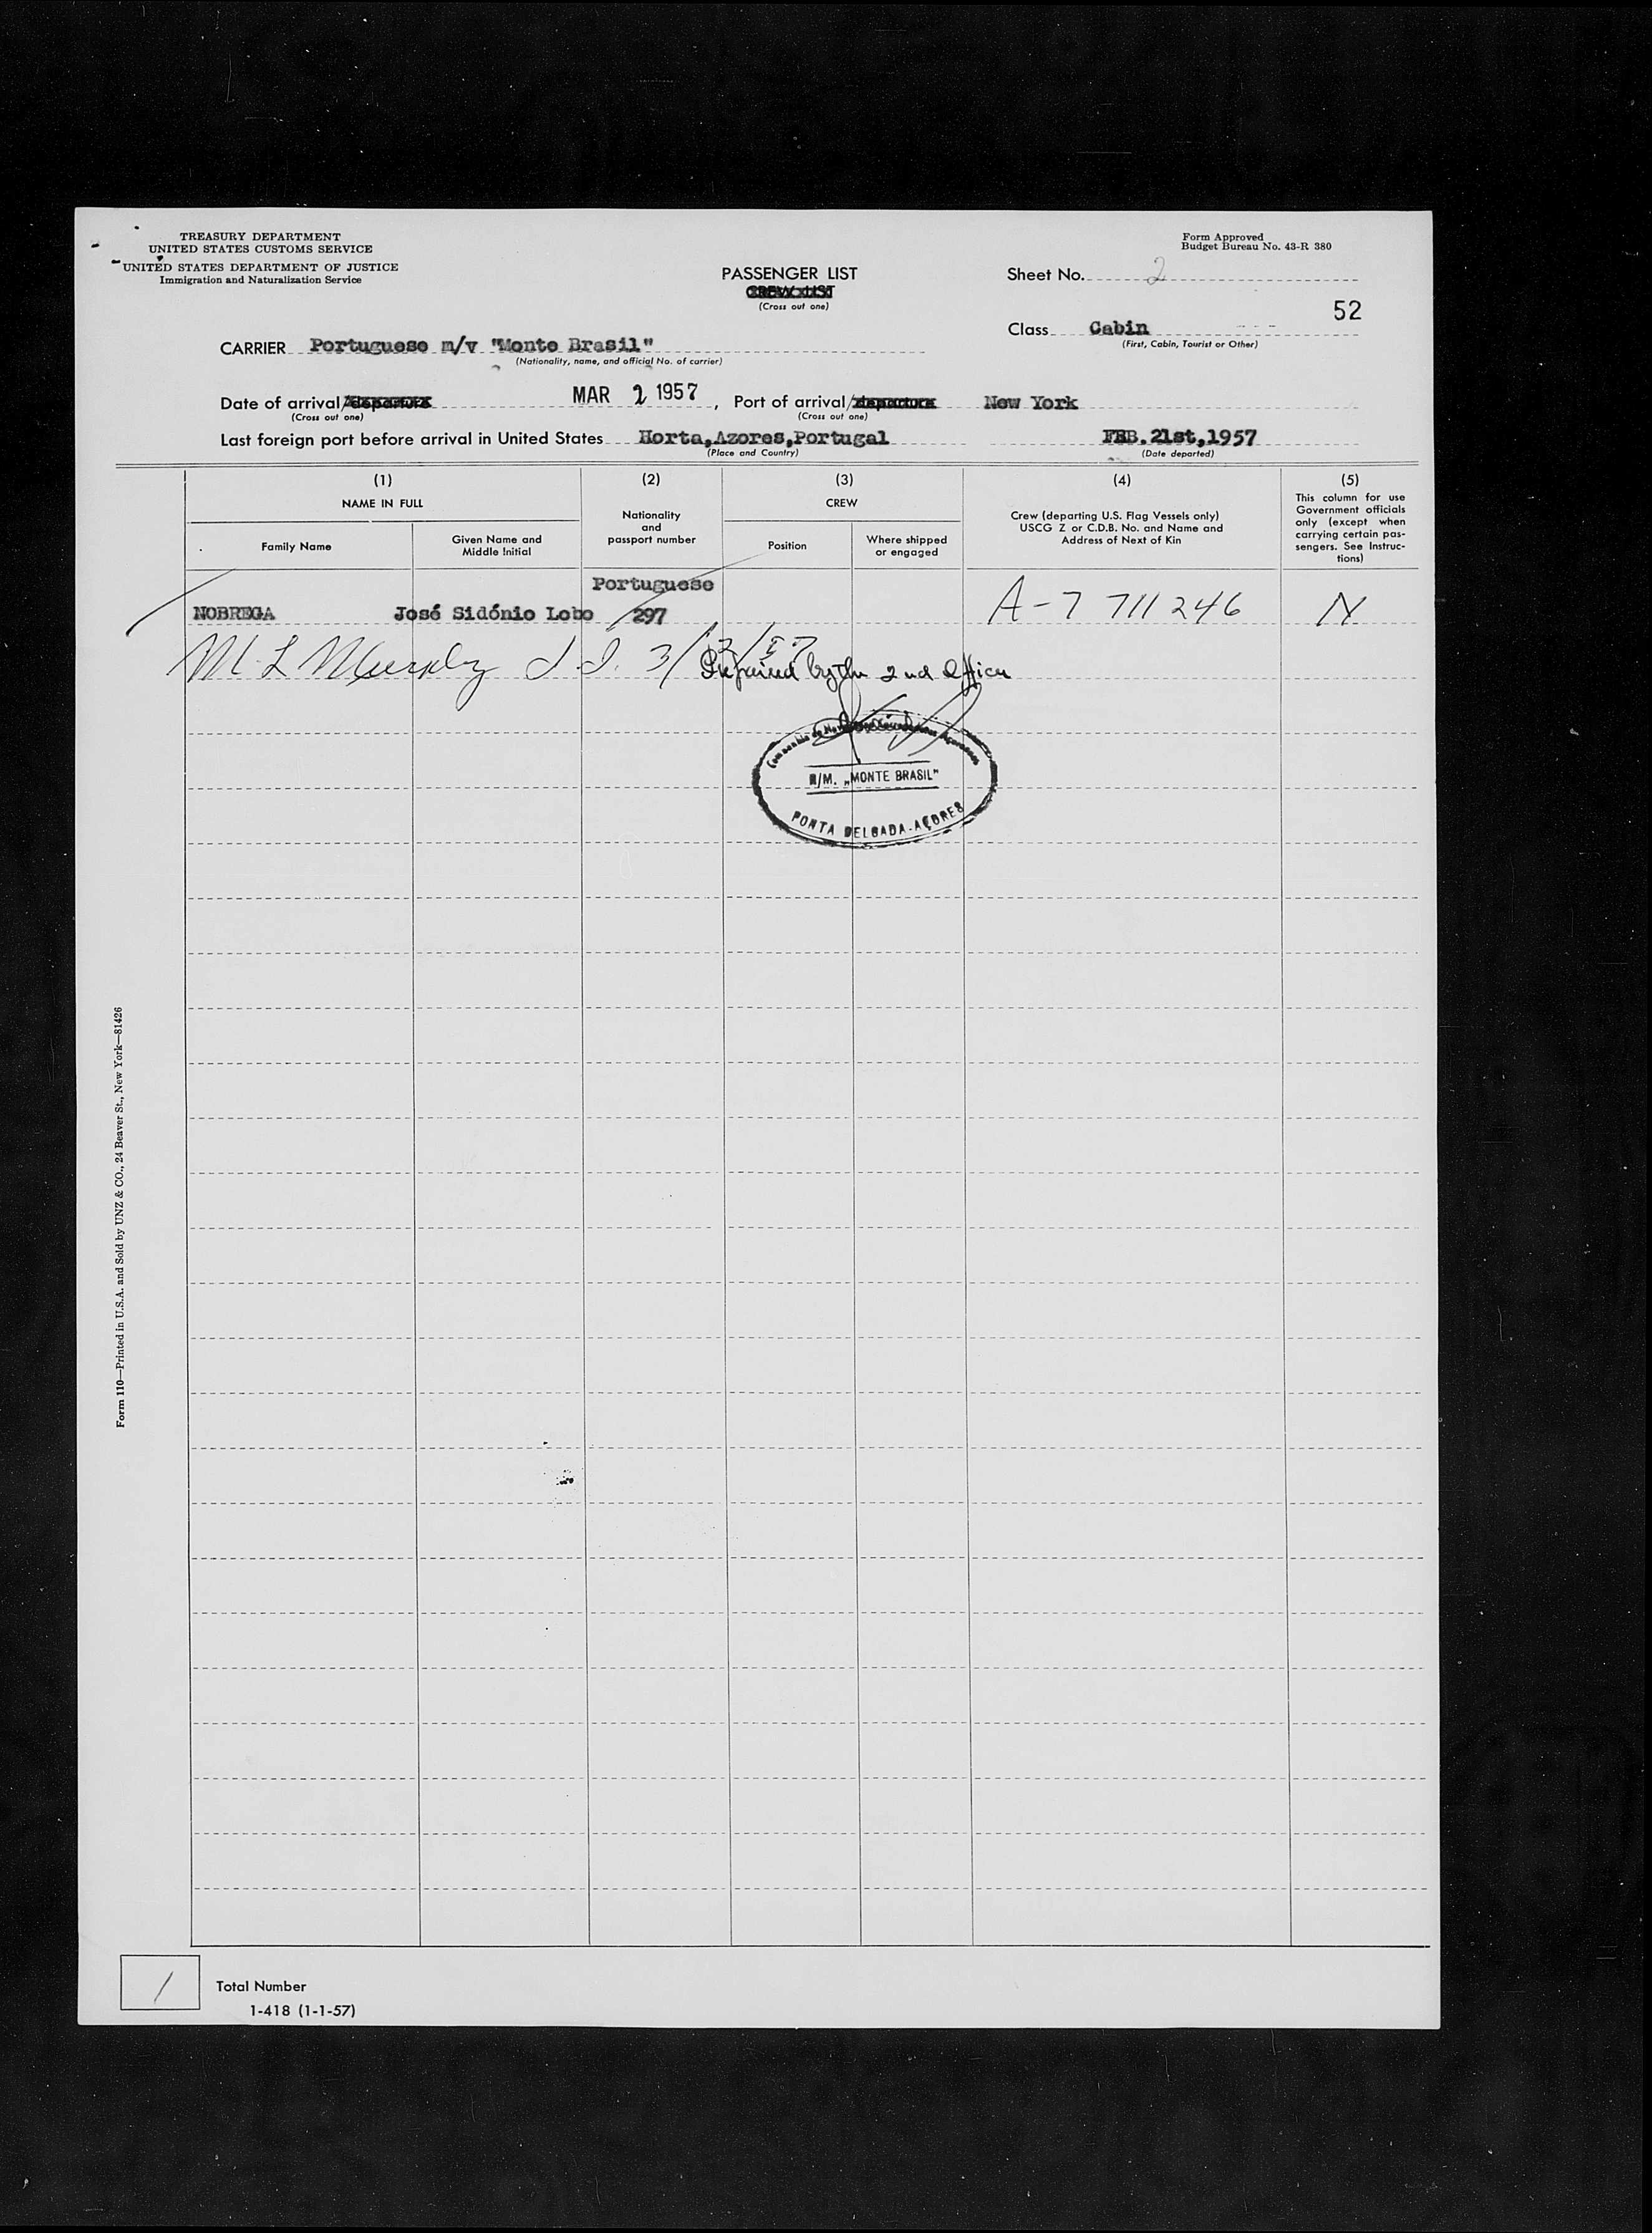 TREASURY DEPARTMENT
UNITED STATES CUSTOMS SERVICE
UNITED STATES DEPARTMENT OF JUSTICE
Immigration and Naturalization Service
Form Approved
Budget Bureau No. 43-R 380
PASSENGER LIST
CREW LIST
(Cross out one)
Sheet No. 2
52
Class Cabin
(First, Cabin, Tourist or Other)
CARRIER Portuguese m/v "Monte Brasil"
(Nationality, name, and official No. of carrier)
Date of arrival/departure MAR 2 1957, Port of arrival/departure New York
(Cross out one) (Cross out one)
Last foreign port before arrival in United States Horta, Azores, Portugal FEB. 21st, 1957
(Place and Country) (Date departed)
(1) (2) (3) (4) (5)
NAME IN FULL
Family Name
Given Name and
Middle Initial
Nationality
and
passport number
CREW
Position
Where shipped
or engaged
Crew (departing U.S. Flag Vessels only)
USCG Z or C.D.B. No. and Name and
Address of Next of Kin
This column for use
Government officials
only (except when
carrying certain pas-
sengers. See Instruc-
tions)
Portuguese
NOBREGA José Sidónio Lobo 297 A-7 711 246 N
M L Murphy I.I. 3/2/57
Prepared by the 2nd Officer
N/M. „MONTE BRASIL"
PONTA DELGADA-AÇORES
Form 110—Printed in U.S.A. and Sold by UNZ & CO., 24 Beaver St., New York—81426
1 Total Number
1-418 (1-1-57)